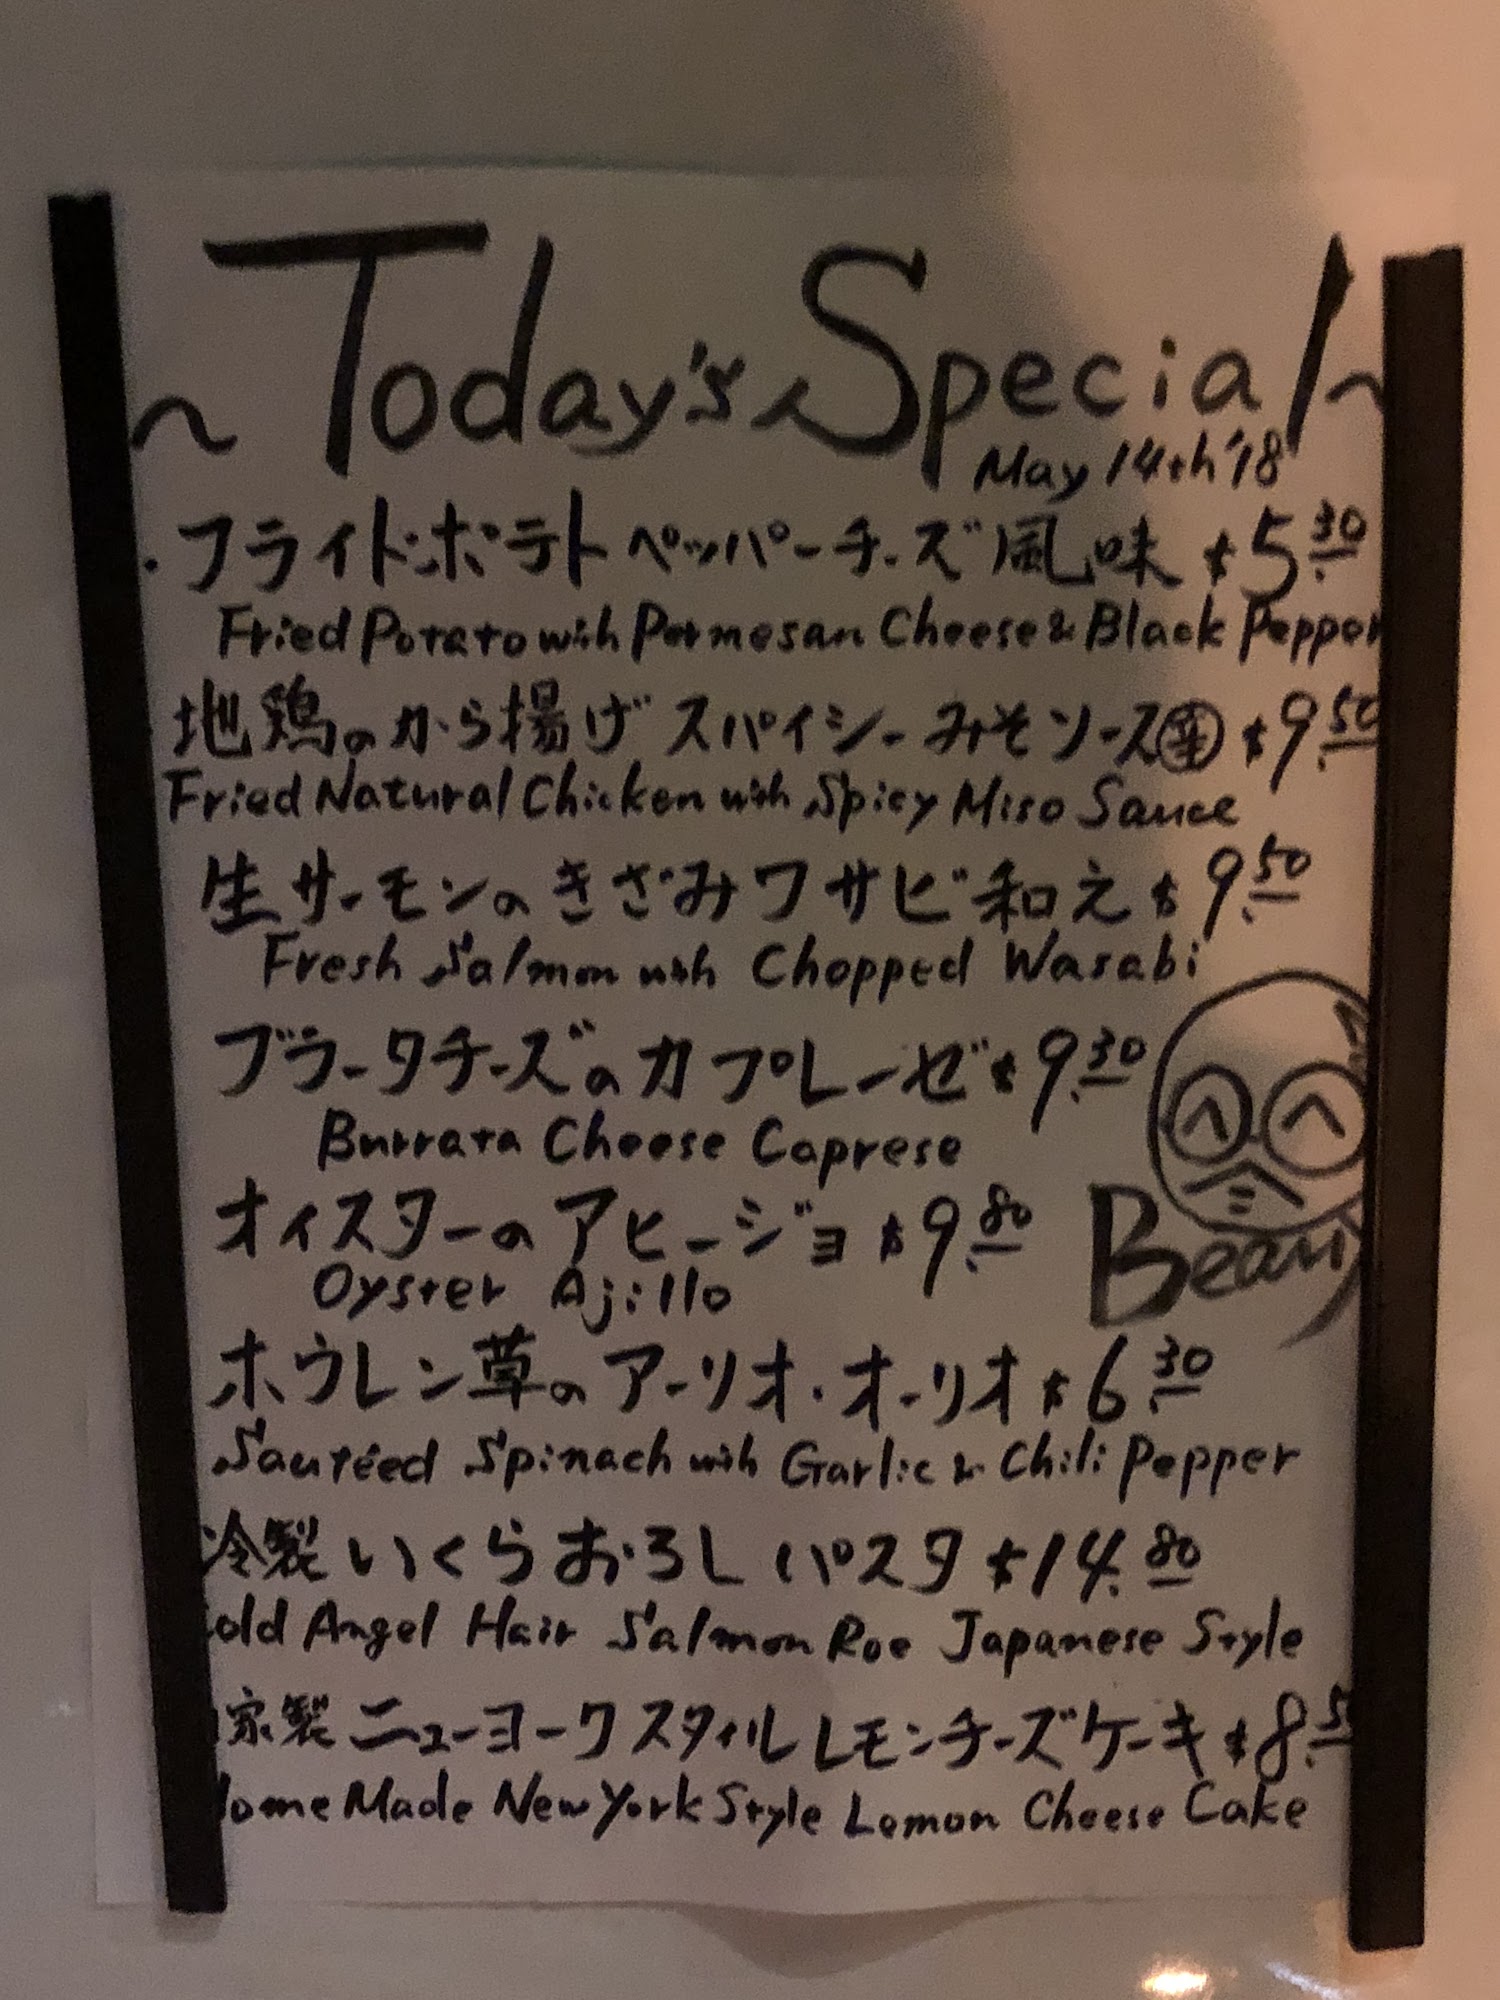 ~ Today's Special ~
May 14th '18
・フライドポテト ペッパーチーズ風味 $5.30
Fried Potato with Permesan Cheese & Black Pepper
地鶏のから揚げ スパイシーみそソース辛 $9.50
Fried Natural Chicken with Spicy Miso Sauce
生サーモンのきざみワサビ和え $9.50
Fresh Salmon with Chopped Wasabi
ブラータチーズのカプレーゼ $9.30
Burrata Cheese Caprese
オイスターのアヒージョ $9.80
Beany
Oyster Ajillo
ホウレン草のアーリオ・オーリオ $6.30
Sautéed Spinach with Garlic & Chili Pepper
冷製 いくらおろし パスタ $14.80
Cold Angel Hair Salmon Roe Japanese Style
家製 ニューヨークスタイル レモンチーズケーキ $8.5
Home Made New York Style Lemon Cheese Cake